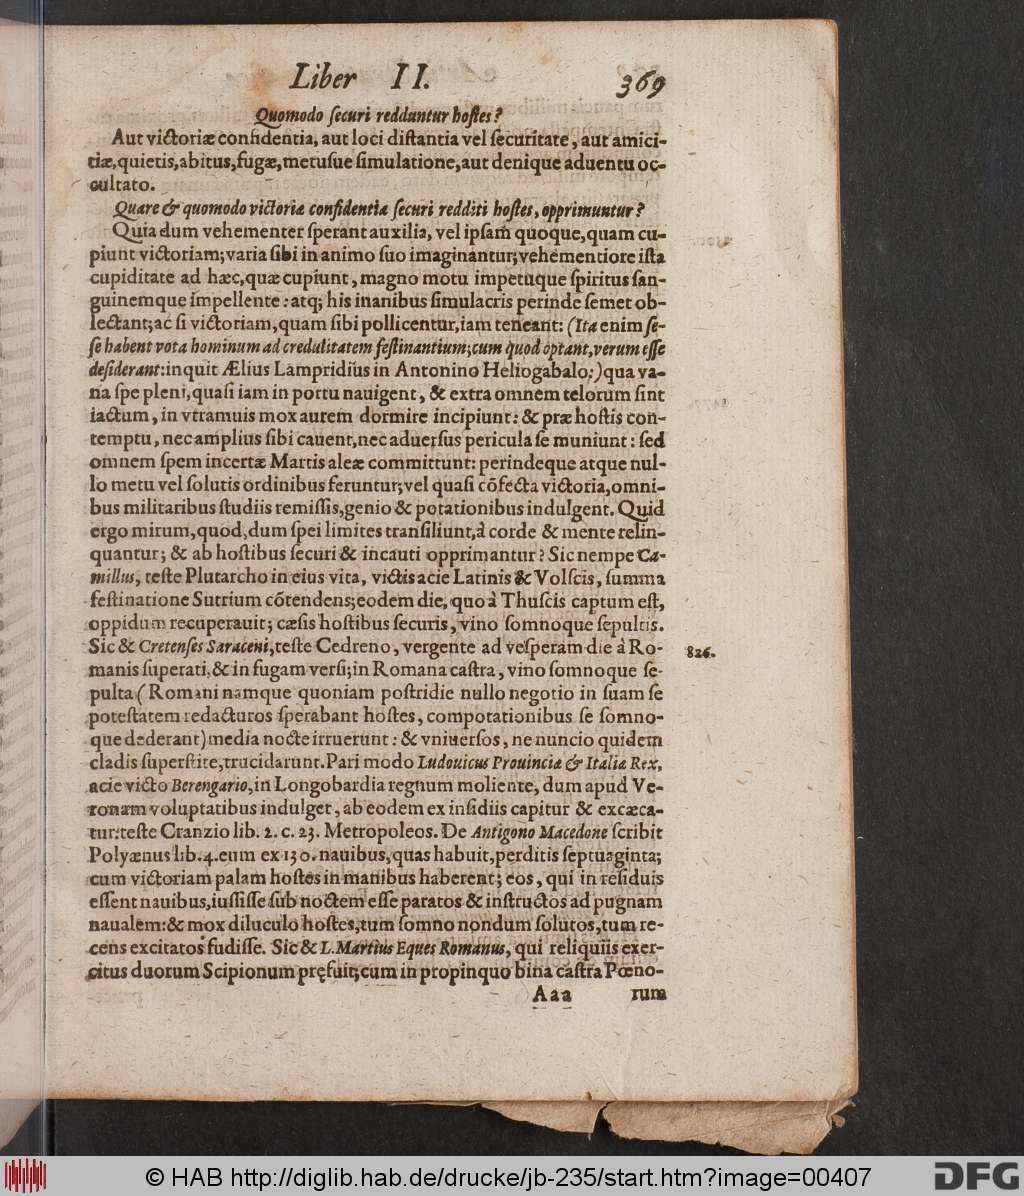 Liber II. 369
Quomodo ſecuri redduntur hoſtes?
Aut victoriæ confidentia, aut loci diſtantia vel ſecuritate, aut amici-
tiæ, quietis, abitus, fugæ, metuſue ſimulatione, aut denique aduentu oc-
cultato.
Quare & quomodo victoria confidentia ſecuri redditi hoſtes, opprimuntur?
Quia dum vehementer ſperant auxilia, vel ipſam quoque, quam cu-
piunt victoriam; varia ſibi in animo ſuo imaginantur; vehementiore iſta
cupiditate ad hæc, quæ cupiunt, magno motu impetuque ſpiritus ſan-
guinemque impellente: atq; his inanibus ſimulacris perinde ſemet ob-
lectant; ac ſi victoriam, quam ſibi pollicentur, iam teneant: (Ita enim ſe-
ſe habent vota hominum ad credulitatem feſtinantium; cum quod optant, verum eſſe
deſiderant: inquit Ælius Lampridius in Antonino Heliogabalo;) qua va-
na ſpe pleni, quaſi iam in portu nauigent, & extra omnem telorum ſint
iactum, in vtramuis mox aurem dormire incipiunt: & præ hoſtis con-
temptu, nec amplius ſibi cauent, nec aduerſus pericula ſe muniunt: ſed
omnem ſpem incertæ Martis aleæ committunt: perindeque atque nul-
lo metu vel ſolutis ordinibus feruntur; vel quaſi cõfecta victoria, omni-
bus militaribus ſtudiis remiſſis, genio & potationibus indulgent. Quid
ergo mirum, quod, dum ſpei limites tranſiliunt, à corde & mente relin-
quantur; & ab hoſtibus ſecuri & incauti opprimantur? Sic nempe Ca-
millus, teſte Plutarcho in eius vita, victis acie Latinis & Volſcis, ſumma
feſtinatione Sutrium cõtendens; eodem die, quo à Thuſcis captum eſt,
oppidum recuperauit; cæſis hoſtibus ſecuris, vino ſomnoque ſepultis.
Sic & Cretenſes Saraceni, teſte Cedreno, vergente ad veſperam die à Ro- 826.
manis ſuperati, & in fugam verſi; in Romana caſtra, vino ſomnoque ſe-
pulta (Romani namque quoniam poſtridie nullo negotio in ſuam ſe
poteſtatem redacturos ſperabant hoſtes, compotationibus ſe ſomno-
que dederant) media nocte irruerunt: & vniuerſos, ne nuncio quidem
cladis ſuperſtite, trucidarunt. Pari modo Ludouicus Prouinciæ & Italiæ Rex,
acie victo Berengario, in Longobardia regnum moliente, dum apud Ve-
ronam voluptatibus indulget, ab eodem ex inſidiis capitur & excæca-
tur: teſte Cranzio lib. 2. c. 23. Metropoleos. De Antigono Macedone ſcribit
Polyænus lib. 4. eum ex 130. nauibus, quas habuit, perditis ſeptuaginta;
cum victoriam palam hoſtes in manibus haberent; eos, qui in reſiduis
eſſent nauibus, iuſſiſſe ſub noctem eſſe paratos & inſtructos ad pugnam
naualem: & mox diluculo hoſtes, tum ſomno nondum ſolutos, tum re-
cens excitatos fudiſſe. Sic & L. Martius Eques Romanus, qui reliquiis exer-
citus duorum Scipionum pręfuit; cum in propinquo bina caſtra Pœno-
Aaa rum
© HAB http://diglib.hab.de/drucke/jb-235/start.htm?image=00407 DFG